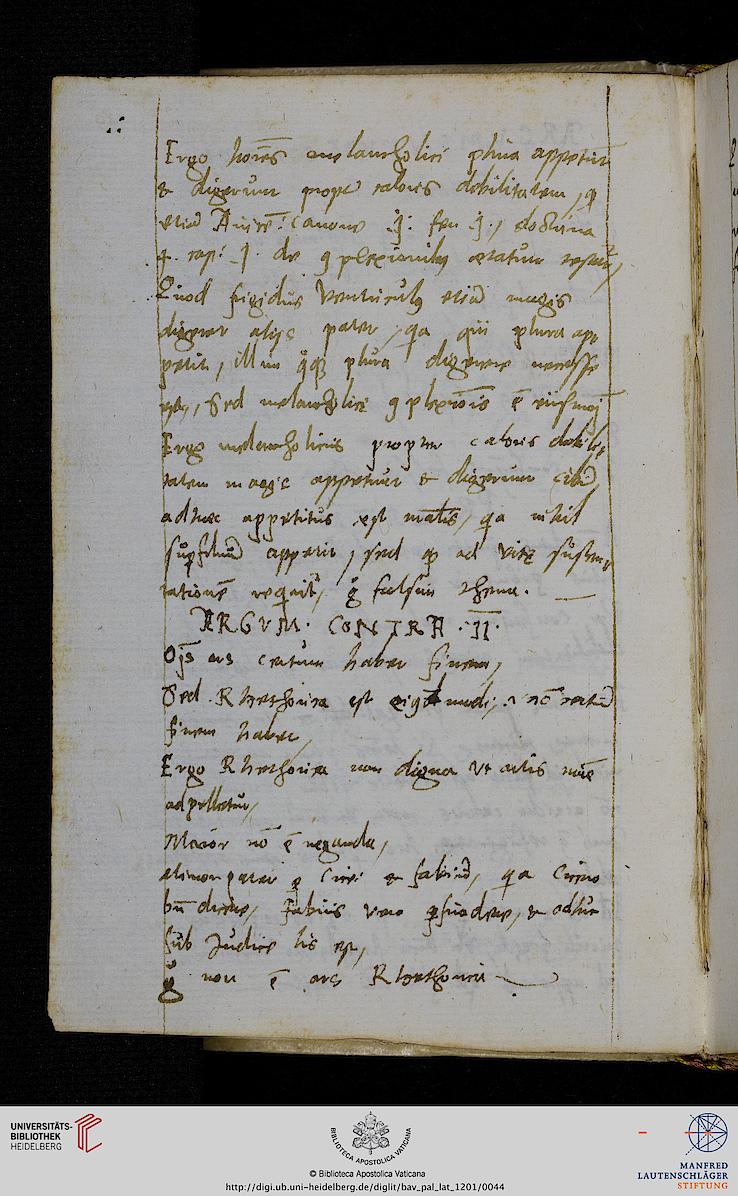 Ergo hoīes melancholici plura appetūt
& digerunt propt caloris debilitatem, qđ
etiā Auicē: canone .j. fen .j., doctrina
cap: .j. de ꝯplexionibꝰ ætatum
Quod frigidus Ventriculꝰ etiā magis
digerat alijs patet, qa qui plura ap
petit, illum qqꝫ plura digerere necesse
est, Sed melancholici ꝯplexiōis ē eiusmoi
Ergo melancholicus propter caloris debili
tatem magis appetunt & digerunt cibū,
adhæc appetitus est nālis, qa nihil
supfluū appetit, sed qđ ad vitę susten
tationē requirit, g falsum thema.
ARGVM. CONTRA .II.
Ois ars certum habet finem,
Sed Rhethorica est eiusmodi, nō certū
finem habet,
Ergo Rhethorica non digna vt artis nōīe
adpelletur,
Maior nō ē neganda,
minor patet p Cice: & fabiū, qa Cicero
bn̄ dicere, Fabius vero psuadere, & adhuc
sub Judice lis est,
g non ē ars Rhethorica
UNIVERSITÄTS-
BIBLIOTHEK
HEIDELBERG
BIBLIOTECA APOSTOLICA VATICANA
© Biblioteca Apostolica Vaticana
http://digi.ub.uni-heidelberg.de/diglit/bav_pal_lat_1201/0044
MANFRED
LAUTENSCHLÄGER
STIFTUNG